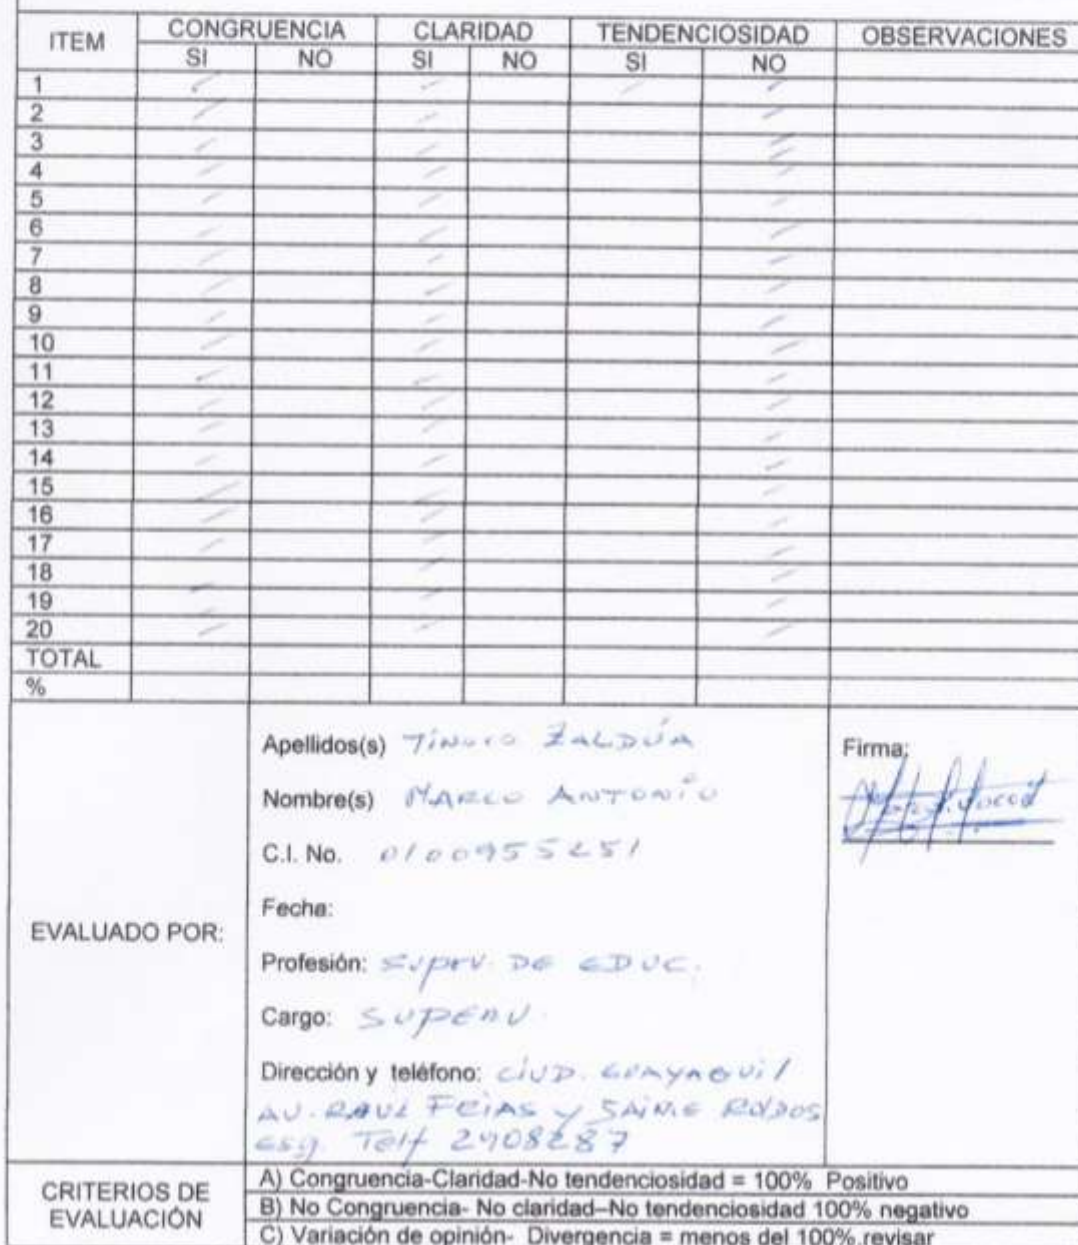 ITEM CONGRUENCIA CLARIDAD TENDENCIOSIDAD OBSERVACIONES
SI NO SI NO SI NO
1
2
3
4
5
6
7
8
9
10
11
12
13
14
15
16
17
18
19
20
TOTAL
%
EVALUADO POR:
Apellidos(s) ZALDÚA
Nombre(s) MARCO ANTONIO
C.I. No. 0100955251
Fecha:
Profesión: DE EDUC.
Cargo: SUPERV.
Dirección y teléfono: CIUD. GUAYAQUIL
AV. RAUL Y
ESQ. Telf 2408287
Firma:
CRITERIOS DE
EVALUACIÓN
A) Congruencia-Claridad-No tendenciosidad = 100% Positivo
B) No Congruencia- No claridad–No tendenciosidad 100% negativo
C) Variación de opinión- Divergencia = menos del 100%.revisar